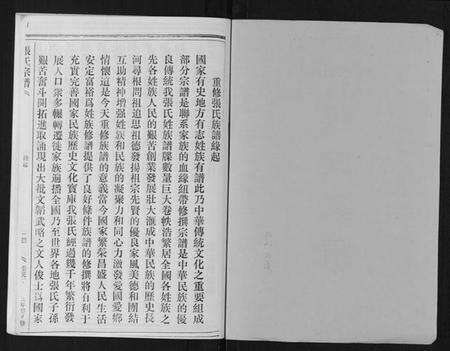 重修張氏族譜緣起
國家有史地方有志姓族有譜此乃中華傳統文化之重要組成
部分宗譜是聯系家族的血緣紐帶修撰宗譜是中華民族的優
良傳統我張氏姓族譜牒數量巨大卷帙浩繁居全國各姓族之
先各姓族人民的艱苦創業發展壯大滙成中華民族的歷史長
河尋根問祖追思祖德發揚祖宗先賢的優良家風美德和團結
互助精神增强姓族和民族的凝聚力和同心力激發愛國愛鄉
情懷這是今天重修族譜的意義當今國家繁榮昌盛人民生活
安定富裕爲姓族修譜提供了良好條件族譜的修撰將有利于
充實完善國家民族歷史文化寶庫我張氏經過幾千年繁衍發
展人口衆多輾轉遷徙家族遍播全國乃至世界各地張氏子孫
艱苦奮斗開拓進取涌現出大批文韜武略之文人俊士爲國家
張氏宗譜